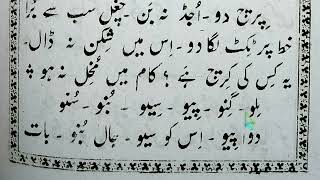 پرچ دو۔ اُجڈ نہ بن۔ چغل سب سے بُرا
خط پر ٹکٹ لگا دو۔ اِس میں شِکن نہ ڈال۔
یہ کِس کی کِرچ ہے؟ کام میں مُخِل نہ ہو
پِلو۔ گِنو۔ پِیو۔ سِیو۔ بُنو۔ سُنو
دوا پِیو۔ اِس کو سیو۔ جال بُنو۔ بات